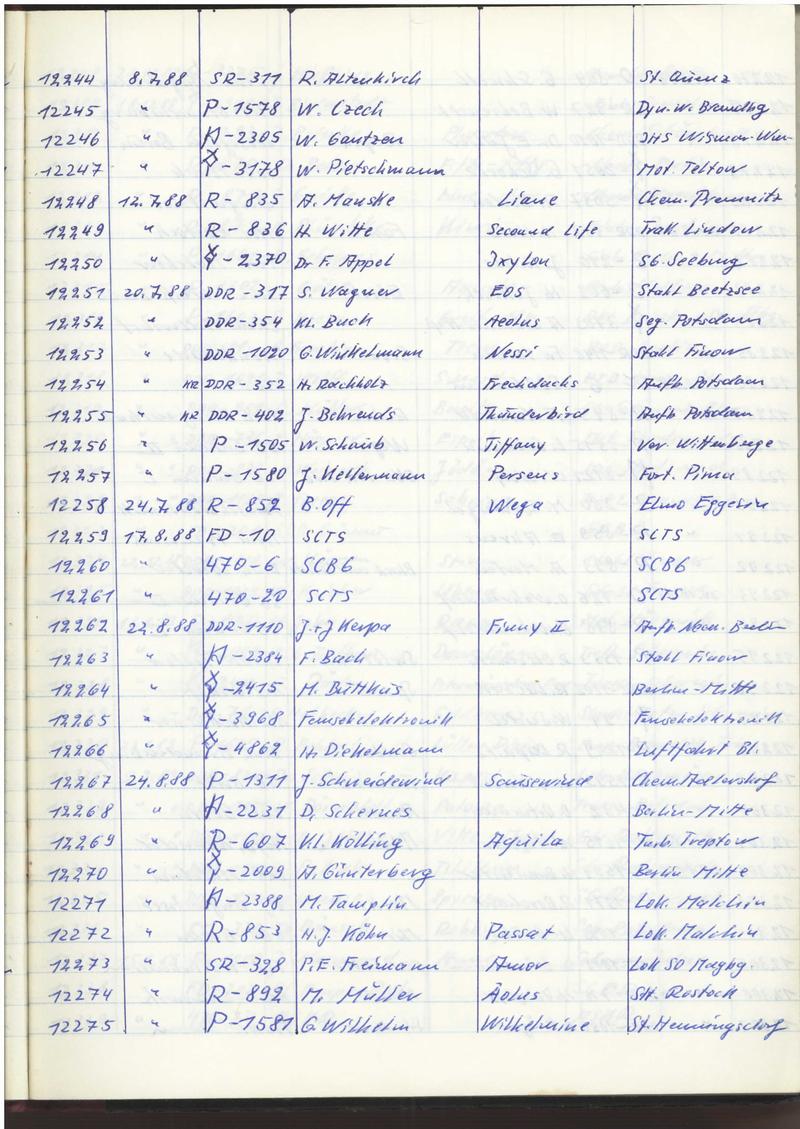 12244 8.7.88 SR-311 R. Altenkirch St. Quenz
12245 " P-1578 W. Czech Dyn. W. Brandbg
12246 " H-2305 W. Gantzen JHS Wismar-Wa
12247 " Y-3178 W. Pietschmann Mot. Teltow
12248 12.7.88 R-835 A. Manske Liane Chem. Premnitz
12249 " R-836 H. Witte Secound Life Trak. Lindow
12250 " Y-2370 Dr F. Appel Ixylon SG. Seeburg
12251 20.7.88 DDR-317 S. Wagner EOS Stahl Beetzsee
12252 " DDR-354 Kl. Buch Aeolus Seg. Potsdam
12253 " DDR-1020 G. Winkelmann Nessi Stahl Finow
12254 " NR DDR-352 H. Rachholz Frechdachs Aufb. Potsdam
12255 " NR DDR-402 J. Behrends Thunderbird Aufb Potsdam
12256 " P-1505 W. Schaub Tiffany Vor. Wittenberge
12257 " P-1580 J. Hellermann Perseus Fort. Pirna
12258 24.7.88 R-852 B. Off Wega Elmo Eggesin
12259 17.8.88 FD-10 SCTS SCTS
12260 " 470-6 SCBG SCBG
12261 " 470-20 SCTS SCTS
12262 22.8.88 DDR-1110 J.+J Kerpa Finny II Aufb. Berlin
12263 " H-2384 F. Bach Stahl Finow
12264 " Y-2415 M. Buttkus Berlin-Mitte
12265 " Y-3968 Fernsehelektronik Fernsehelektronik
12266 " Y-4862 H. Diekelmann Luftfahrt Bl.
12267 29.8.88 P-1311 J. Schneidewind Sausewind Chem. Adlershof
12268 " H-2231 D. Schernes Berlin-Mitte
12269 " R-607 Kl. Kölling Aquila Turb. Treptow
12270 " Y-2009 A. Günterberg Berlin Mitte
12271 " H-2388 M. Tamplin Lok. Malchin
12272 " R-853 H.J. Köhn Passat Lok. Malchin
12273 " SR-328 P.E. Freimann Amor Lok SO Magbg.
12274 " R-892 M. Müller Äolus SH. Rostock
12275 " P-1581 G. Wilhelm Wilhelmine St. Henningsdorf